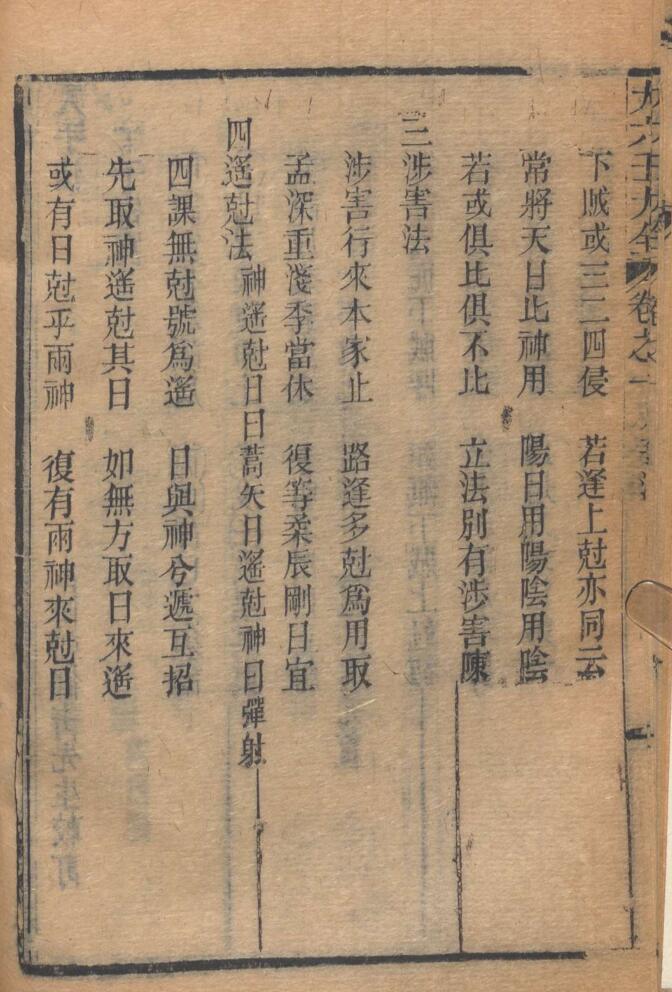 大六壬大全 卷之一
下賊或三二四侵 若逢上尅亦同云
常將天日比神用 陽日用陽陰用陰
若或俱比俱不比 立法別有涉害陳
三涉害法
涉害行來本家止 路逢多尅爲用取
孟深重淺季當休 復等柔辰剛日宜
四遥尅法 神遥尅日曰蒿矢日遥尅神曰彈射
四課無尅號爲遥 日與神兮遞互招
先取神遥尅其日 如無方取日來遥
或有日尅乎兩神 復有兩神來尅日